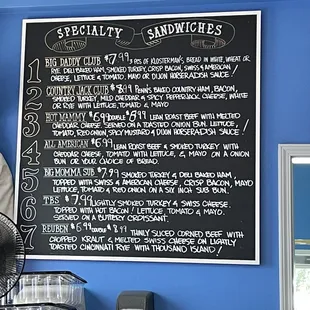 SPECIALTY SANDWICHES
1 BIG DADDY CLUB $7.99 3 PCS OF KLOSTERMAN'S, BREAD IN WHITE, WHEAT OR
RYE. DELI BAKED HAM, SMOKED TURKEY, CRISP BACON, SWISS & AMERICAN
CHEESE, LETTUCE & TOMATO, MAYO OR DIJON HORSERADISH SAUCE!
2 COUNTRY JACK CLUB $8.99 PENN'S BAKED COUNTRY HAM, BACON,
SMOKED TURKEY, MILD CHEDDAR & SPICY PEPPERJACK CHEESE, WHITE
OR RYE WITH LETTUCE, TOMATO & MAYO
3 HOT MAMMY $6.99 DOUBLE $8.99 LEAN ROAST BEEF WITH MELTED
CHEDDAR CHEESE SERVED ON A TOASTED ONION BUN. LETTUCE,
TOMATO, RED ONION, SPICY MUSTARD & DIJON HORSERADISH SAUCE!
4 ALL AMERICAN $6.99 LEAN ROAST BEEF & SMOKED TURKEY WITH
CHEDDAR CHEESE, TOMATO WITH LETTUCE, & MAYO ON A ONION
BUN OR YOUR CHOICE OF BREAD.
5 BIG MOMMA SUB $7.99 SMOKED TURKEY & DELI BAKED HAM,
TOPPED WITH SWISS & AMERICAN CHEESE, CRISP BACON, MAYO
LETTUCE, TOMATO & RED ONION ON A SIX INCH SUB BUN.
6 TBS $7.99 LIGHTLY SMOKED TURKEY & SWISS CHEESE
TOPPED WITH HOT BACON! LETTUCE, TOMATO & MAYO.
SERVED ON A BUTTERY CROISSANT.
7 REUBEN $6.99 DOUBLE $8.99 THINLY SLICED CORNED BEEF WITH
CHOPPED KRAUT & MELTED SWISS CHEESE ON LIGHTLY
TOASTED CINCINNATI RYE WITH THOUSAND ISLAND!